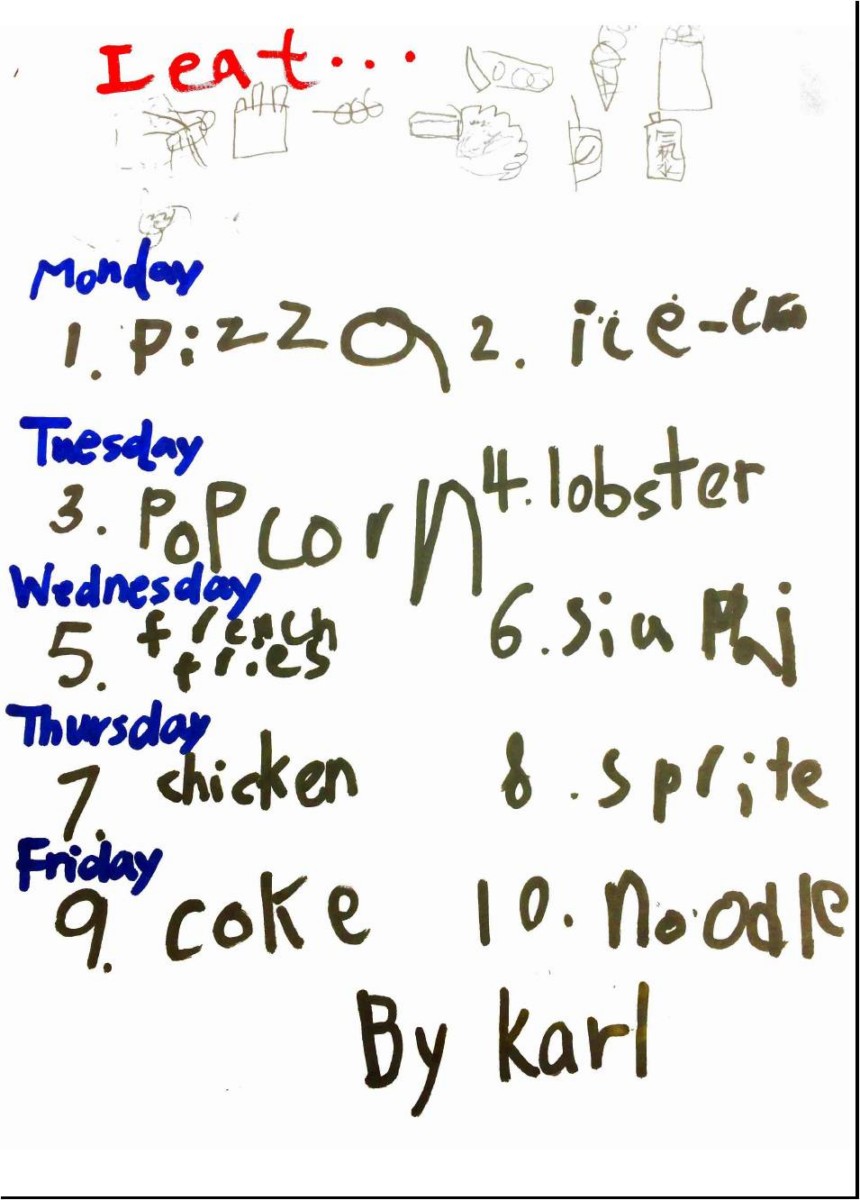 I eat...
Monday
1. Pizza 2. ice-
Tuesday
3. Popcorn 4. lobster
Wednesday
5. french fries 6. siu
Thursday
7. chicken 8. sprite
Friday
9. coke 10. noodle
By karl